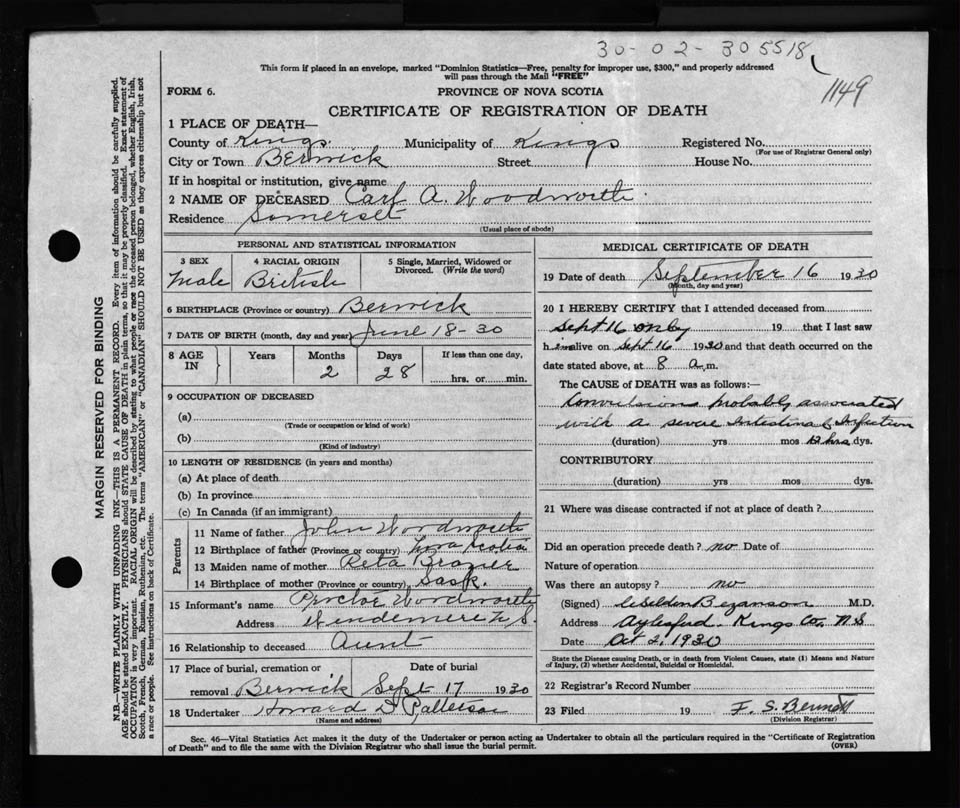 30-02-305518
1149
This form if placed in an envelope, marked "Dominion Statistics—Free, penalty for improper use, $300," and properly addressed
will pass through the Mail "FREE"
FORM 6. PROVINCE OF NOVA SCOTIA
CERTIFICATE OF REGISTRATION OF DEATH
1 PLACE OF DEATH—
County of Kings Municipality of Kings Registered No.
(For use of Registrar General only)
City or Town Berwick Street House No.
If in hospital or institution, give name
2 NAME OF DECEASED Carl A. Woodworth
Residence Somerset
(Usual place of abode)
PERSONAL AND STATISTICAL INFORMATION
3 SEX 4 RACIAL ORIGIN 5 Single, Married, Widowed or
Divorced. (Write the word)
Male British
6 BIRTHPLACE (Province or country) Berwick
7 DATE OF BIRTH (month, day and year) June 18-30
8 AGE IN Years Months Days If less than one day,
2 28 hrs. or min.
9 OCCUPATION OF DECEASED
(a)
(Trade or occupation or kind of work)
(b)
(Kind of industry)
10 LENGTH OF RESIDENCE (in years and months)
(a) At place of death
(b) In province
(c) In Canada (if an immigrant)
Parents
11 Name of father John Woodworth
12 Birthplace of father (Province or country) Nova Scotia
13 Maiden name of mother Reta Brazier
14 Birthplace of mother (Province or country) Sask.
15 Informant's name Proctor Woodworth
Address Windermere N S.
16 Relationship to deceased Aunt
17 Place of burial, cremation or Date of burial
removal Berwick Sept 17 1930
18 Undertaker Howard D Patterson
(Name and address)
MEDICAL CERTIFICATE OF DEATH
19 Date of death September 16 1930
(Month, day and year)
20 I HEREBY CERTIFY that I attended deceased from
Sept 16 only 19 that I last saw
him alive on Sept 16 1930 and that death occurred on the
date stated above, at 8 a.m.
The CAUSE of DEATH was as follows:—
Convulsions probably associated
with a severe Intestinal Infection
(duration) yrs mos 12 hrs dys.
CONTRIBUTORY
(duration) yrs mos dys.
21 Where was disease contracted if not at place of death?
Did an operation precede death? no Date of
Nature of operation
Was there an autopsy? no
(Signed) Bezanson M.D.
Address Aylesford. Kings Co. N.S
Date Oct 2, 1930
State the Disease causing Death, or in death from Violent Causes, state (1) Means and Nature
of Injury, (2) whether Accidental, Suicidal or Homicidal.
22 Registrar's Record Number
23 Filed 19 F. S. Bennett
(Division Registrar)
Sec. 46—Vital Statistics Act makes it the duty of the Undertaker or person acting as Undertaker to obtain all the particulars required in the "Certificate of Registration
of Death" and to file the same with the Division Registrar who shall issue the burial permit. (OVER)
MARGIN RESERVED FOR BINDING
N.B.—WRITE PLAINLY WITH UNFADING INK—THIS IS A PERMANENT RECORD. Every item of information should be carefully supplied.
AGE should be stated EXACTLY. PHYSICIANS should STATE CAUSE OF DEATH in plain terms, so that it may be properly classified. Exact statement of
OCCUPATION is very important. RACIAL ORIGIN will be described by stating to what people or race the deceased person belonged, whether English, Irish,
Scotch, French, German, Russian, Ruthenian, etc. The terms "AMERICAN" or "CANADIAN" SHOULD NOT BE USED as they express citizenship but not
a race or people. See instructions on back of Certificate.